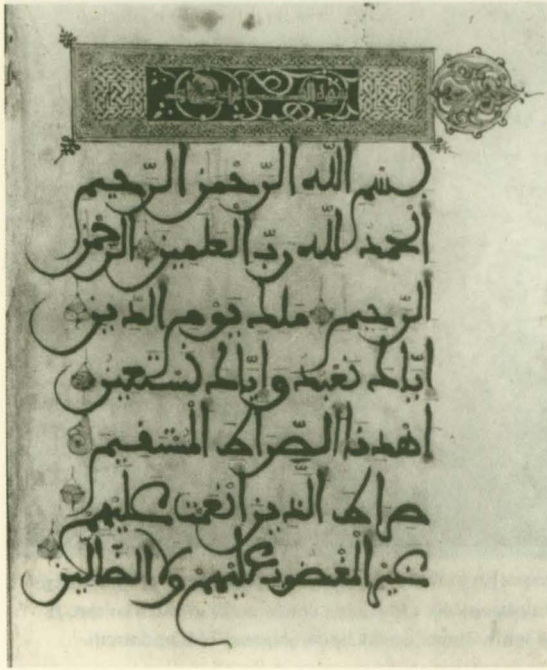 بسم الله الرّحمن الرّحيم
الحمد لله ربّ العلمين الرّحمن
الرّحيم ملك يوم الدّين
ايّاك نعبد وايّاك نستعين
اهدنا الصّراط المستقيم
صراط الّذين انعمت عليهم
غير المغضوب عليهم ولا الضّالين